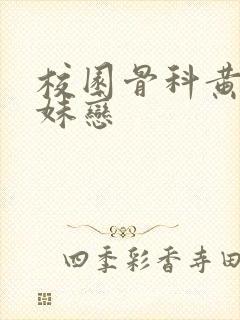 校園骨科黄
妹戀
四季彩香寺田